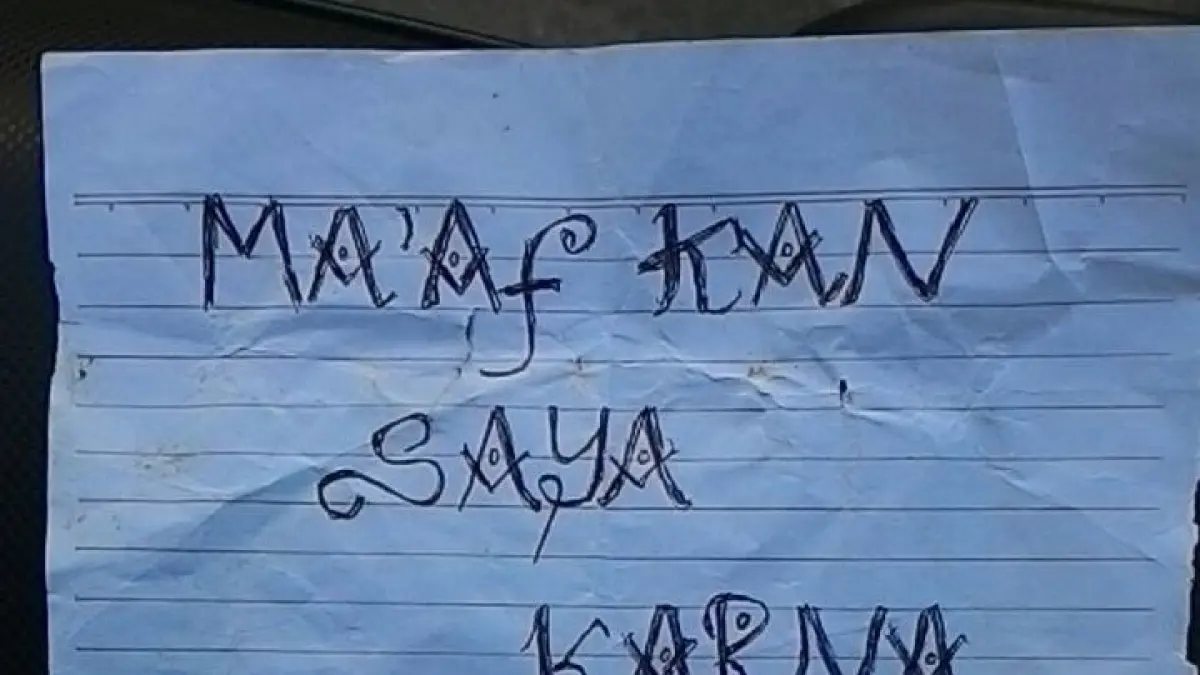 MA'Af KAN
SAYA
KARNA